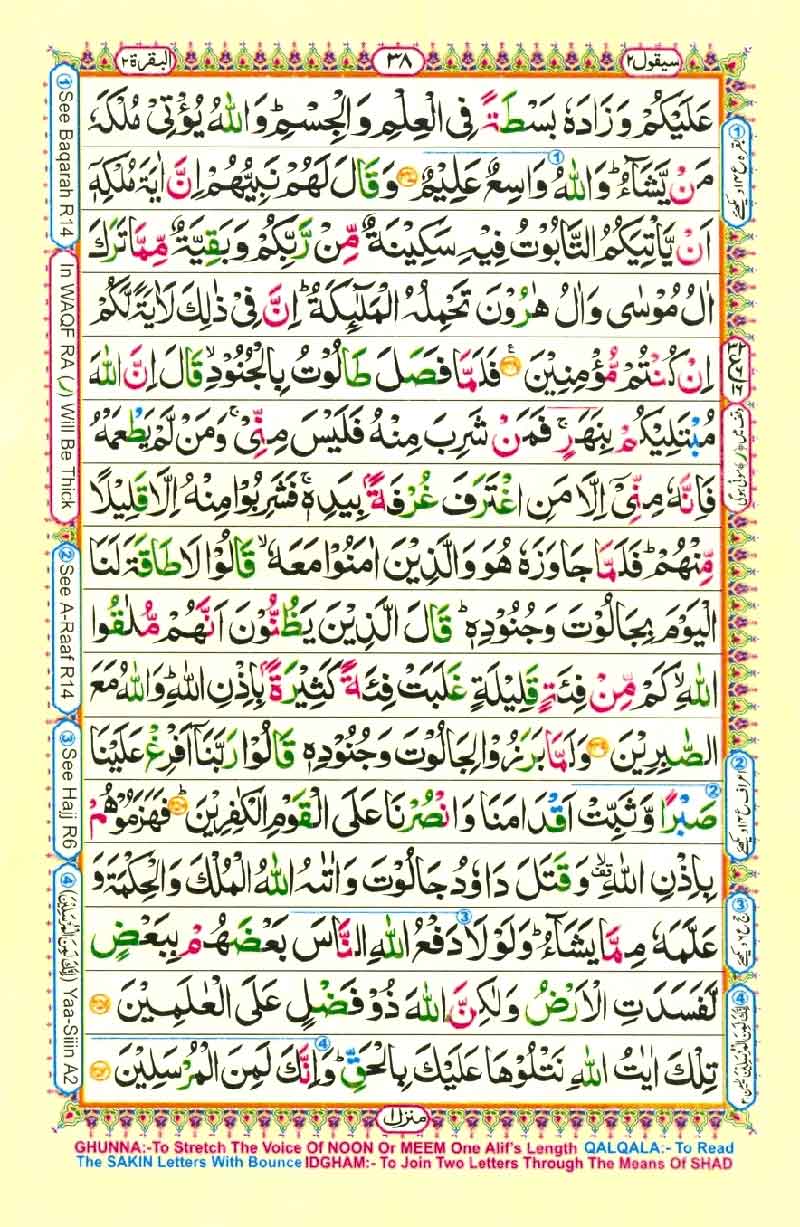 البقرة ٢
٣٨
سيقول ٢
عَلَيْكُمْ وَزَادَهٗ بَسْطَةً فِي الْعِلْمِ وَالْجِسْمِ ؕ وَاللّٰهُ يُؤْتِيْ مُلْكَهٗ
مَنْ يَّشَآءُ ؕ وَاللّٰهُ وَاسِعٌ عَلِيْمٌ ۝ وَقَالَ لَهُمْ نَبِيُّهُمْ اِنَّ اٰيَةَ مُلْكِهٖٓ
اَنْ يَّاْتِيَكُمُ التَّابُوْتُ فِيْهِ سَكِيْنَةٌ مِّنْ رَّبِّكُمْ وَبَقِيَّةٌ مِّمَّا تَرَكَ
اٰلُ مُوْسٰى وَاٰلُ هٰرُوْنَ تَحْمِلُهُ الْمَلٰٓئِكَةُ ؕ اِنَّ فِيْ ذٰلِكَ لَاٰيَةً لَّكُمْ
اِنْ كُنْتُمْ مُّؤْمِنِيْنَ ۝ فَلَمَّا فَصَلَ طَالُوْتُ بِالْجُنُوْدِ ۙ قَالَ اِنَّ اللّٰهَ
مُبْتَلِيْكُمْ بِنَهَرٍ ۚ فَمَنْ شَرِبَ مِنْهُ فَلَيْسَ مِنِّيْ ۚ وَمَنْ لَّمْ يَطْعَمْهُ
فَاِنَّهٗ مِنِّيْٓ اِلَّا مَنِ اغْتَرَفَ غُرْفَةًۢ بِيَدِهٖ ۚ فَشَرِبُوْا مِنْهُ اِلَّا قَلِيْلًا
مِّنْهُمْ ؕ فَلَمَّا جَاوَزَهٗ هُوَ وَالَّذِيْنَ اٰمَنُوْا مَعَهٗ ۙ قَالُوْا لَا طَاقَةَ لَنَا
الْيَوْمَ بِجَالُوْتَ وَجُنُوْدِهٖ ؕ قَالَ الَّذِيْنَ يَظُنُّوْنَ اَنَّهُمْ مُّلٰقُوا
اللّٰهِ ۙ كَمْ مِّنْ فِئَةٍ قَلِيْلَةٍ غَلَبَتْ فِئَةً كَثِيْرَةًۢ بِاِذْنِ اللّٰهِ ؕ وَاللّٰهُ مَعَ
الصّٰبِرِيْنَ ۝ وَلَمَّا بَرَزُوْا لِجَالُوْتَ وَجُنُوْدِهٖ قَالُوْا رَبَّنَآ اَفْرِغْ عَلَيْنَا
صَبْرًا وَّثَبِّتْ اَقْدَامَنَا وَانْصُرْنَا عَلَى الْقَوْمِ الْكٰفِرِيْنَ ؕ فَهَزَمُوْهُمْ
بِاِذْنِ اللّٰهِ ۙ وَقَتَلَ دَاوٗدُ جَالُوْتَ وَاٰتٰىهُ اللّٰهُ الْمُلْكَ وَالْحِكْمَةَ وَ
عَلَّمَهٗ مِمَّا يَشَآءُ ؕ وَلَوْلَا دَفْعُ اللّٰهِ النَّاسَ بَعْضَهُمْ بِبَعْضٍ
لَّفَسَدَتِ الْاَرْضُ وَلٰكِنَّ اللّٰهَ ذُوْ فَضْلٍ عَلَى الْعٰلَمِيْنَ ۝
تِلْكَ اٰيٰتُ اللّٰهِ نَتْلُوْهَا عَلَيْكَ بِالْحَقِّ ؕ وَاِنَّكَ لَمِنَ الْمُرْسَلِيْنَ ۝
① See Baqarah R14
In WAQF RA (ر) Will Be Thick
② See A-Raaf R14
③ See Hajj R6
④ (اِنَّكَ لَمِنَ الْمُرْسَلِيْنَ) Yaa-Siiin A2
منزل ١
GHUNNA:-To Stretch The Voice Of NOON Or MEEM One Alif's Length QALQALA:- To Read
The SAKIN Letters With Bounce IDGHAM:- To Join Two Letters Through The Means Of SHAD